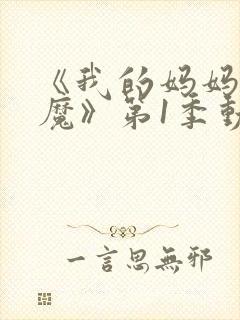 《我的妈妈
魔》第1季動
一言思無邪